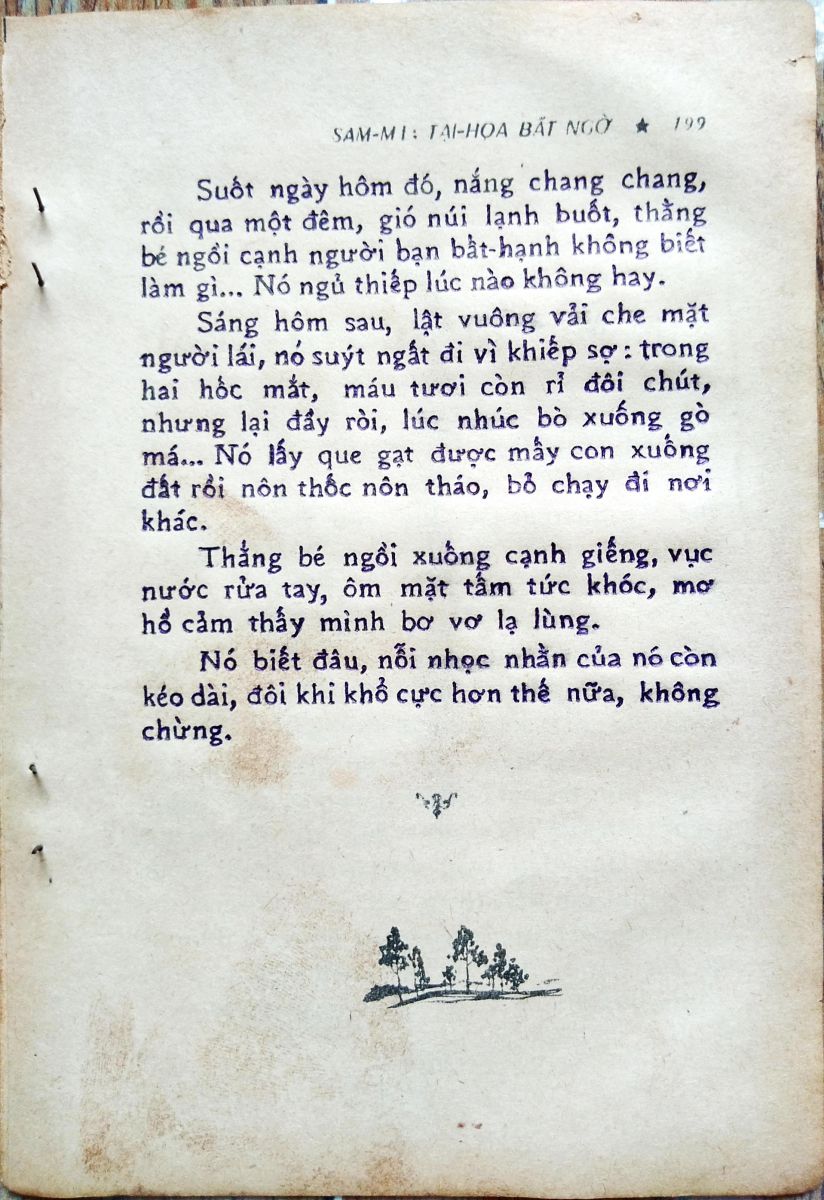 SAM-MI : TAI-HỌA BẤT NGỜ ★ 199
Suốt ngày hôm đó, nắng chang chang,
rồi qua một đêm, gió núi lạnh buốt, thằng
bé ngồi cạnh người bạn bất-hạnh không biết
làm gì... Nó ngủ thiếp lúc nào không hay.
Sáng hôm sau, lật vuông vải che mặt
người lái, nó suýt ngất đi vì khiếp sợ : trong
hai hốc mắt, máu tươi còn rỉ đôi chút,
nhưng lại đầy ròi, lúc nhúc bò xuống gò
má... Nó lấy que gạt được mấy con xuống
đất rồi nôn thốc nôn tháo, bỏ chạy đi nơi
khác.
Thằng bé ngồi xuống cạnh giếng, vục
nước rửa tay, ôm mặt tấm tức khóc, mơ
hồ cảm thấy mình bơ vơ lạ lùng.
Nó biết đâu, nỗi nhọc nhằn của nó còn
kéo dài, đôi khi khổ cực hơn thế nữa, không
chừng.